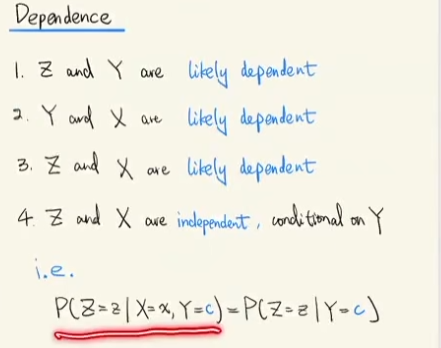 Dependence
1. Z and Y are likely dependent
2. Y and X are likely dependent
3. Z and X are likely dependent
4. Z and X are independent, conditional on Y
i.e.
P(Z=z|X=x, Y=c) = P(Z=z|Y=c)